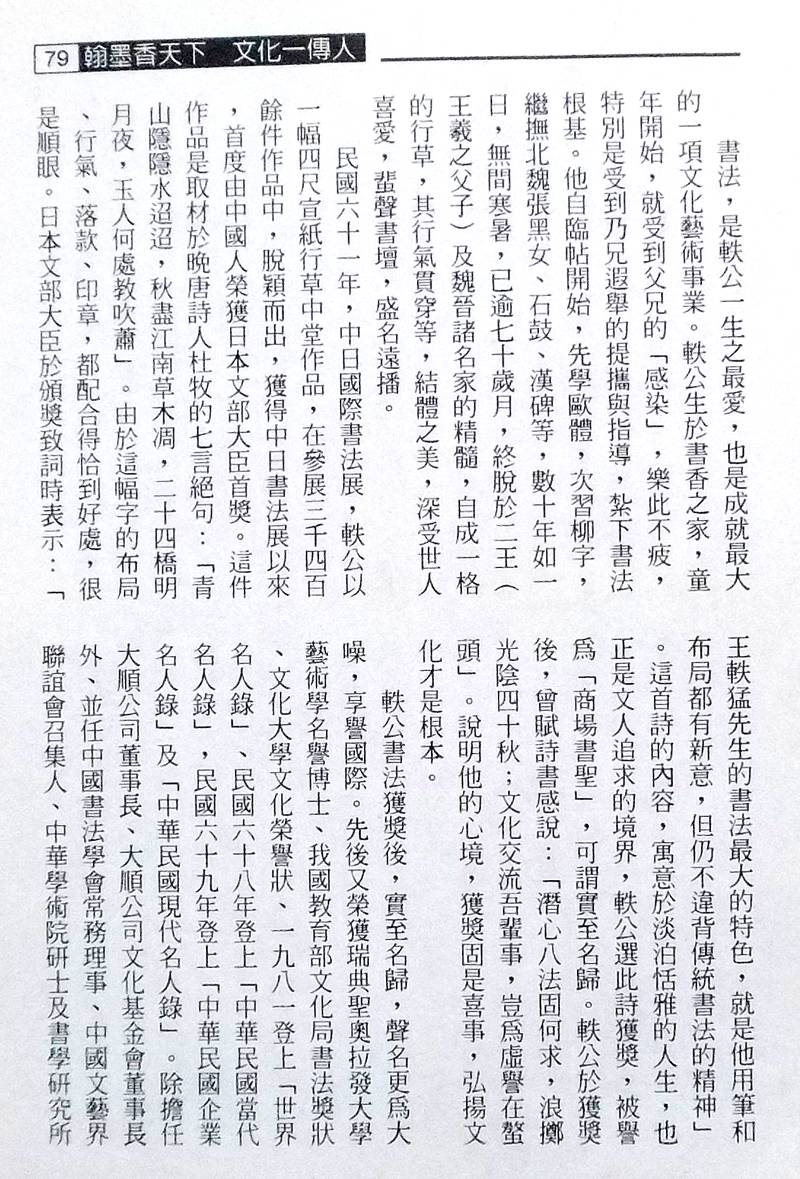 79 翰墨香天下 文化一傳人
書法，是軼公一生之最愛，也是成就最大
的一項文化藝術事業。軼公生於書香之家，童
年開始，就受到父兄的「感染」，樂此不疲，
特別是受到乃兄遐舉的提攜與指導，紮下書法
根基。他自臨帖開始，先學歐體，次習柳字，
繼撫北魏張黑女、石鼓、漢碑等，數十年如一
日，無間寒暑，已逾七十歲月，終脫於二王（
王羲之父子）及魏晉諸名家的精髓，自成一格
的行草，其行氣貫穿等，結體之美，深受世人
喜愛，蜚聲書壇，盛名遠播。
民國六十一年，中日國際書法展，軼公以
一幅四尺宣紙行草中堂作品，在參展三千四百
餘件作品中，脫穎而出，獲得中日書法展以來
，首度由中國人榮獲日本文部大臣首獎。這件
作品是取材於晚唐詩人杜牧的七言絕句：「青
山隱隱水迢迢，秋盡江南草木凋，二十四橋明
月夜，玉人何處教吹蕭」。由於這幅字的布局
、行氣、落款、印章，都配合得恰到好處，很
是順眼。日本文部大臣於頒獎致詞時表示：「
王軼猛先生的書法最大的特色，就是他用筆和
布局都有新意，但仍不違背傳統書法的精神」
。這首詩的內容，寓意於淡泊恬雅的人生，也
正是文人追求的境界，軼公選此詩獲獎，被譽
為「商場書聖」，可謂實至名歸。軼公於獲獎
後，曾賦詩書感說：「潛心八法固何求，浪擲
光陰四十秋；文化交流吾輩事，豈為虛譽在螯
頭」。說明他的心境，獲獎固是喜事，弘揚文
化才是根本。
軼公書法獲獎後，實至名歸，聲名更為大
噪，享譽國際。先後又榮獲瑞典聖奧拉發大學
藝術學名譽博士、我國教育部文化局書法獎狀
、文化大學文化榮譽狀、一九八一登上「世界
名人錄」、民國六十八年登上「中華民國當代
名人錄」，民國六十九年登上「中華民國企業
名人錄」及「中華民國現代名人錄」。除擔任
大順公司董事長、大順公司文化基金會董事長
外、並任中國書法學會常務理事、中國文藝界
聯誼會召集人、中華學術院研士及書學研究所